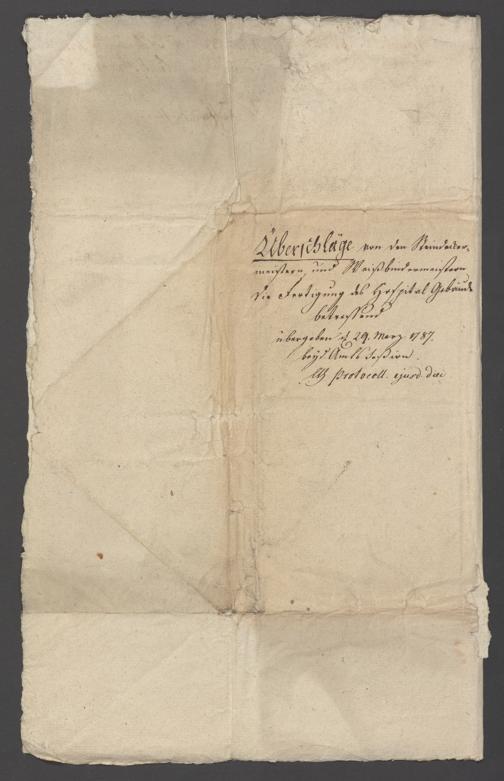 Überschläge von den Steindecker-
meistern, und Weißbindermeistern
die Fertigung des Hospital Gebäude
betreffend
übergeben d. 29. Merz 1787.
beÿ Amts Session.
Protocoll. ejusd. diei